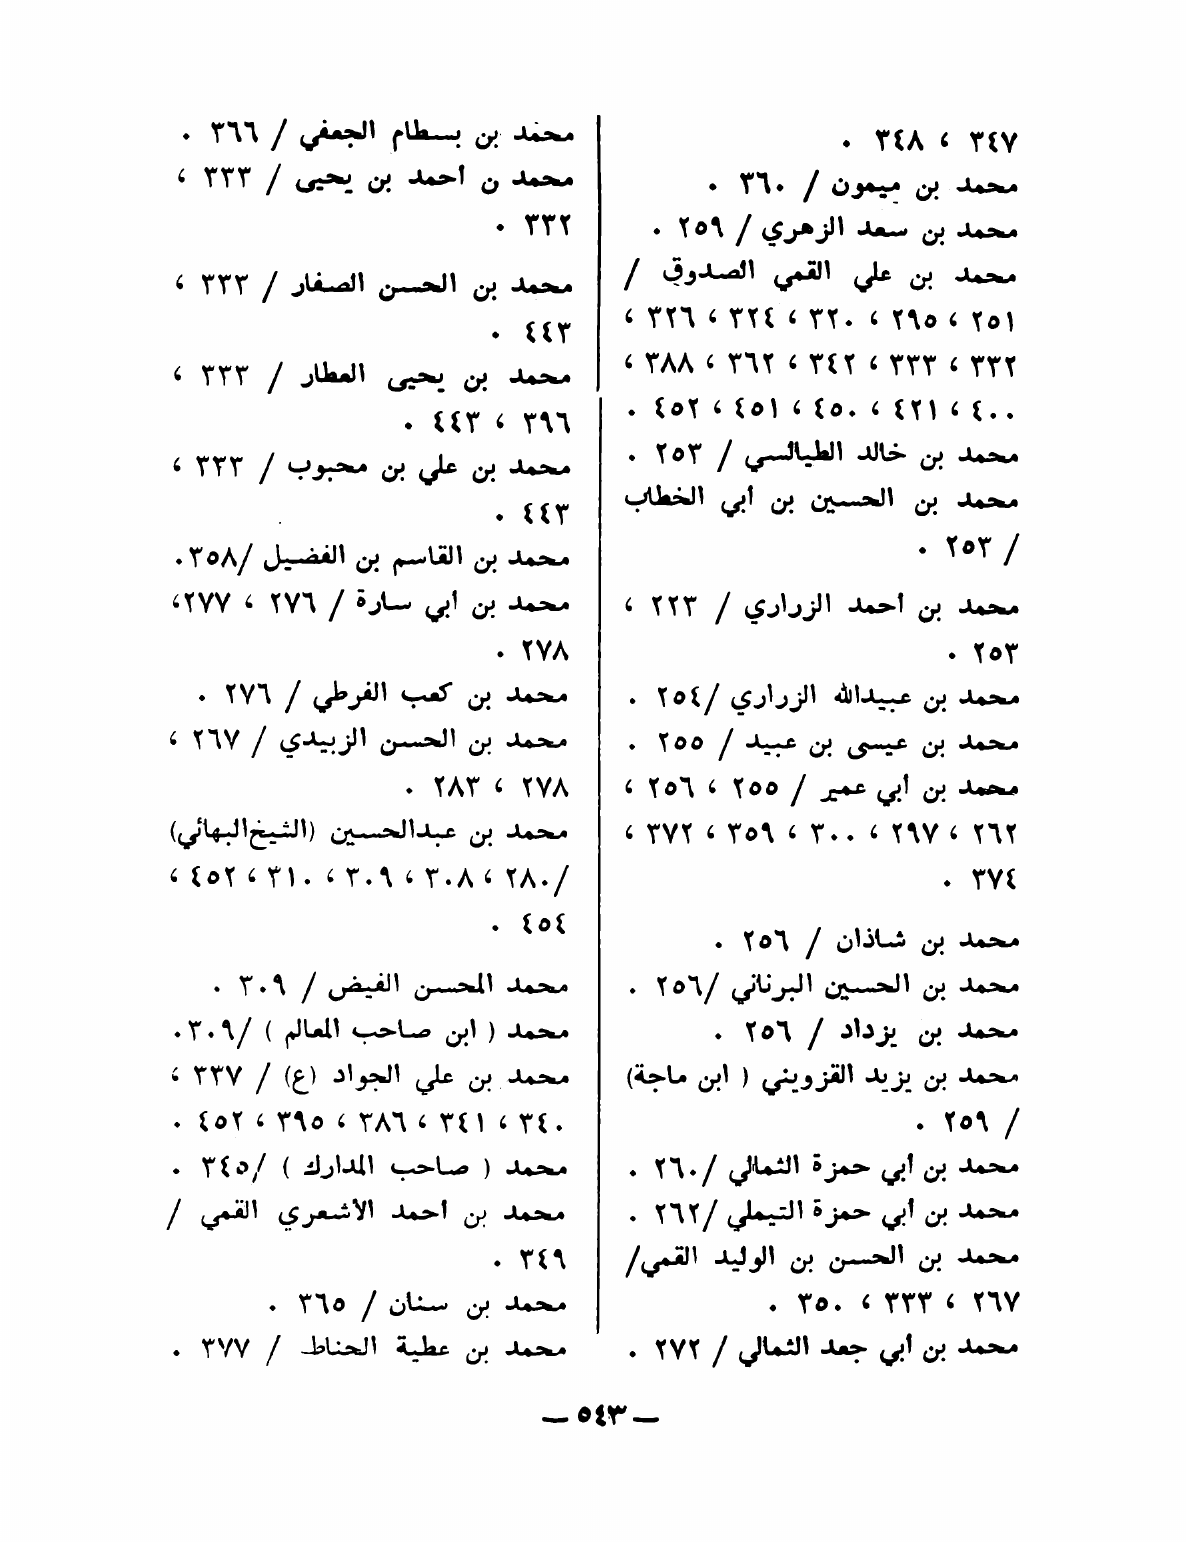 ٣٤٧ ، ٣٤٨ .
محمد بن ميمون / ٣٦٠ .
محمد بن سعد الزهري / ٢٥٩ .
محمد بن علي القمي الصدوق /
٢٥١ ، ٢٩٥ ، ٣٢٠ ، ٣٢٤ ، ٣٢٦ ،
٣٣٢ ، ٣٣٣ ، ٣٤٢ ، ٣٦٢ ، ٣٨٨ ،
٤٠٠ ، ٤٢١ ، ٤٥٠ ، ٤٥١ ، ٤٥٢ .
محمد بن خالد الطيالسي / ٢٥٣ .
محمد بن الحسين بن أبي الخطاب
/ ٢٥٣ .
محمد بن أحمد الزراري / ٢٢٣ ،
٢٥٣ .
محمد بن عبيدالله الزراري /٢٥٤ .
محمد بن عيسى بن عبيد / ٢٥٥ .
محمد بن أبي عمير / ٢٥٥ ، ٢٥٦ ،
٢٦٢ ، ٢٩٧ ، ٣٠٠ ، ٣٥٩ ، ٣٧٢ ،
٣٧٤ .
محمد بن شاذان / ٢٥٦ .
محمد بن الحسين البرناني /٢٥٦ .
محمد بن يزداد / ٢٥٦ .
محمد بن يزيد القزويني ( ابن ماجة)
/ ٢٥٩ .
محمد بن أبي حمزة الثمالي /٢٦٠ .
محمد بن أبي حمزة التيملي /٢٦٢ .
محمد بن الحسن بن الوليد القمي/
٢٦٧ ، ٣٣٣ ، ٣٥٠ .
محمد بن أبي جعد الثمالي / ٢٧٢ .
محمد بن بسطام الجعفي / ٣٦٦ .
محمد ن أحمد بن يحيى / ٣٣٣ ،
٣٣٢ .
محمد بن الحسن الصفار / ٣٣٣ ،
٤٤٣ .
محمد بن يحيى العطار / ٣٣٣ ،
٣٩٦ ، ٤٤٣ .
محمد بن علي بن محبوب / ٣٣٣ ،
٤٤٣ .
محمد بن القاسم بن الفضيل /٣٥٨.
محمد بن أبي سارة / ٢٧٦ ، ٢٧٧،
٢٧٨ .
محمد بن كعب الفرطي / ٢٧٦ .
محمد بن الحسن الزبيدي / ٢٦٧ ،
٢٧٨ ، ٢٨٣ .
محمد بن عبدالحسين (الشيخ البهائي)
/٢٨٠ ، ٣٠٨ ، ٣٠٩ ، ٣١٠ ، ٤٥٢ ،
٤٥٤ .
محمد المحسن الفيض / ٣٠٩ .
محمد ( ابن صاحب المعالم ) /٣٠٩.
محمد بن علي الجواد (ع) / ٣٣٧ ،
٣٤٠ ، ٣٤١ ، ٣٨٦ ، ٣٩٥ ، ٤٥٢ .
محمد ( صاحب المدارك ) /٣٤٥ .
محمد بن احمد الاشعري القمي /
٣٤٩ .
محمد بن سنان / ٣٦٥ .
محمد بن عطية الحناط / ٣٧٧ .
— ٥٤٣ —